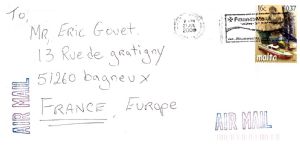 To,
Mr. Eric Govet.
13 Rue de gratigny
51260 bagneux
FRANCE, Europe
AIR MAIL
2008
16c €0.37
malta
AIR MAIL